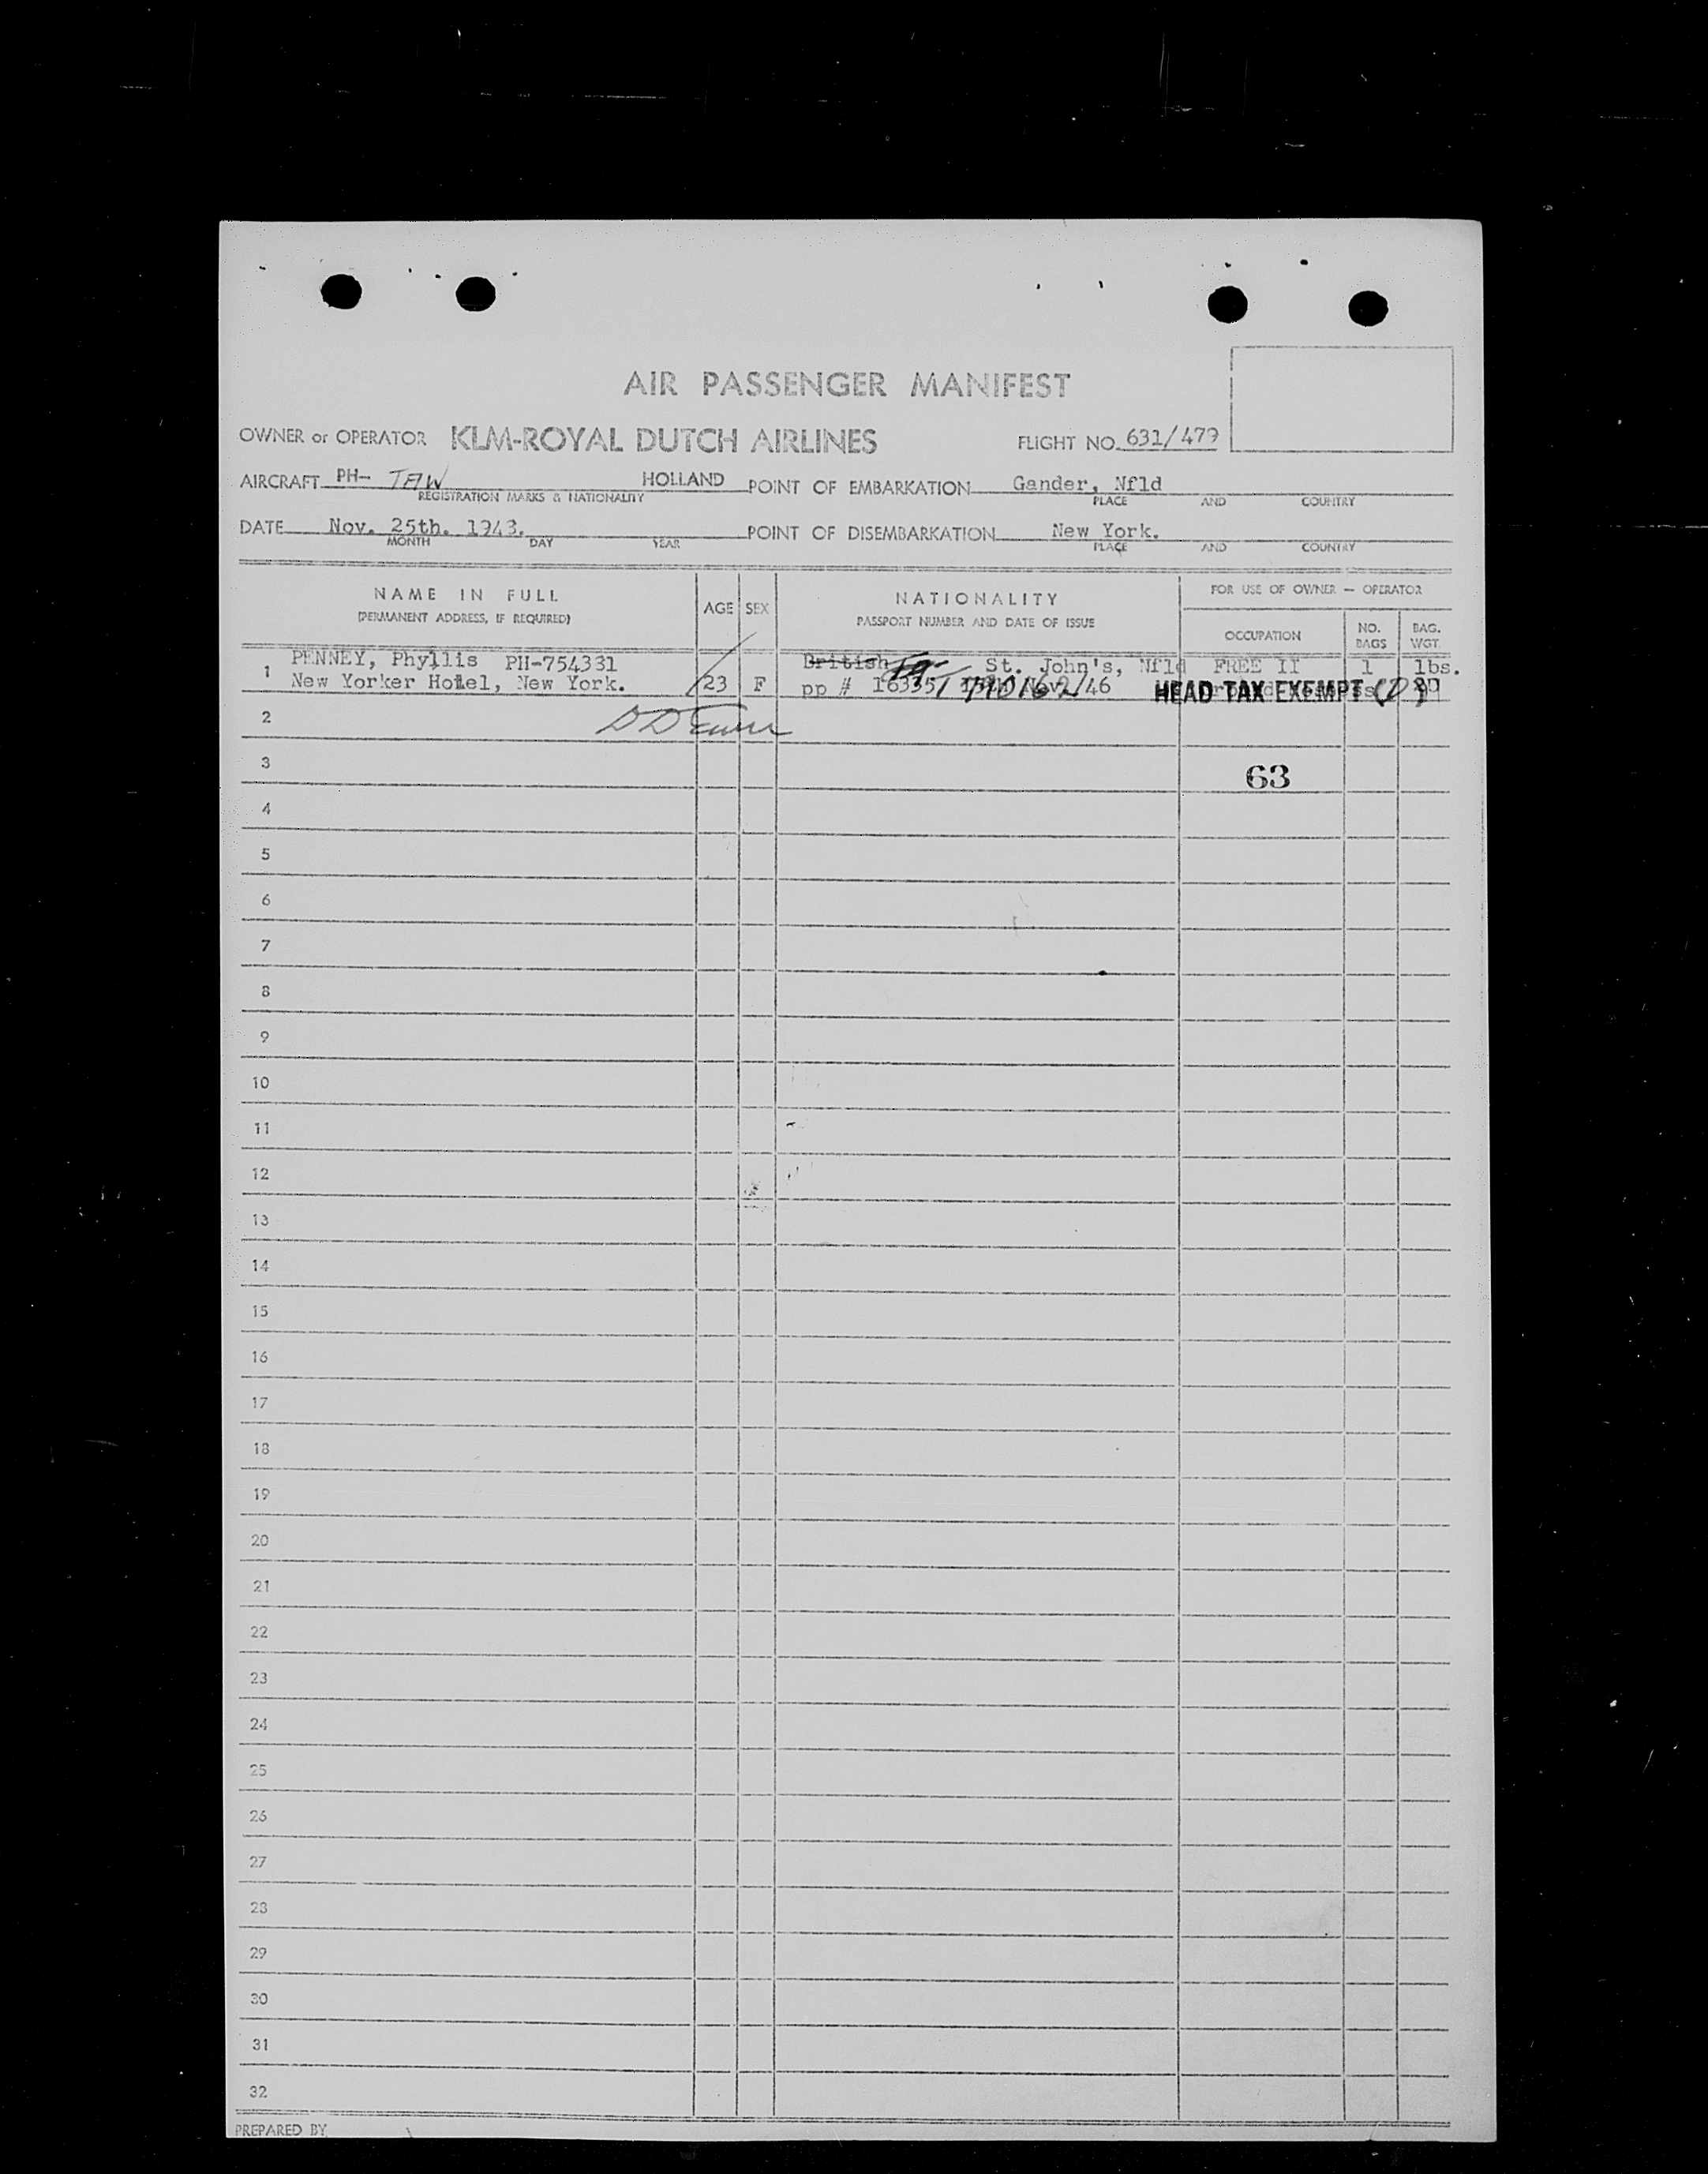 AIR PASSENGER MANIFEST
OWNER or OPERATOR KLM-ROYAL DUTCH AIRLINES FLIGHT NO. 631/479
AIRCRAFT PH- TAW HOLLAND POINT OF EMBARKATION Gander, Nfld
REGISTRATION MARKS & NATIONALITY PLACE AND COUNTRY
DATE Nov. 25th. 1948. POINT OF DISEMBARKATION New York.
MONTH DAY YEAR PLACE AND COUNTRY
NAME IN FULL
(PERMANENT ADDRESS, IF REQUIRED)
AGE SEX
NATIONALITY
PASSPORT NUMBER AND DATE OF ISSUE
FOR USE OF OWNER — OPERATOR
OCCUPATION
NO. BAGS
BAG. WGT.
1 PENNEY, Phyllis PH-754331 British St. John's, Nfld FREE II 1 lbs.
New Yorker Hotel, New York. 23 F pp # 16335 Nov. /46
HEAD TAX EXEMPT
2
3
63
4
5
6
7
8
9
10
11
12
13
14
15
16
17
18
19
20
21
22
23
24
25
26
27
28
29
30
31
32
PREPARED BY